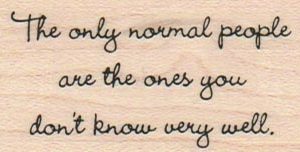 The only normal people
are the ones you
don't know very well.